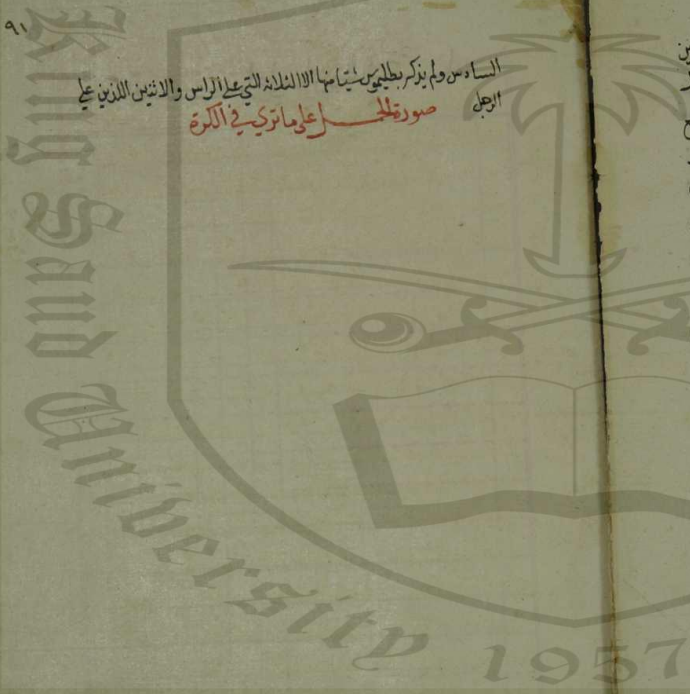 ٩١
السادس ولم يذكر بطلميوس شيتا منها الا الثلاثة التي على الراس والاثنين اللذين علي
الرجل
صورة الحمل على ما تري في الكرة
King Saud University
1957